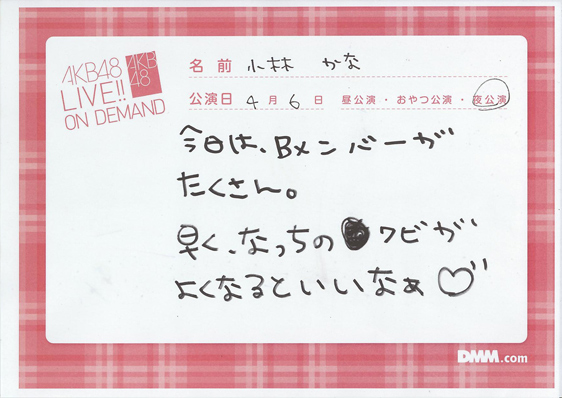 AKB48
LIVE!!
ON DEMAND
AKB
48
名前 小林 かな
公演日 4月6日 昼公演・おやつ公演・夜公演
今日は、Bメンバーが
たくさん。
早く、なっちの クビが
よくなるといいなぁ♡
DMM.com